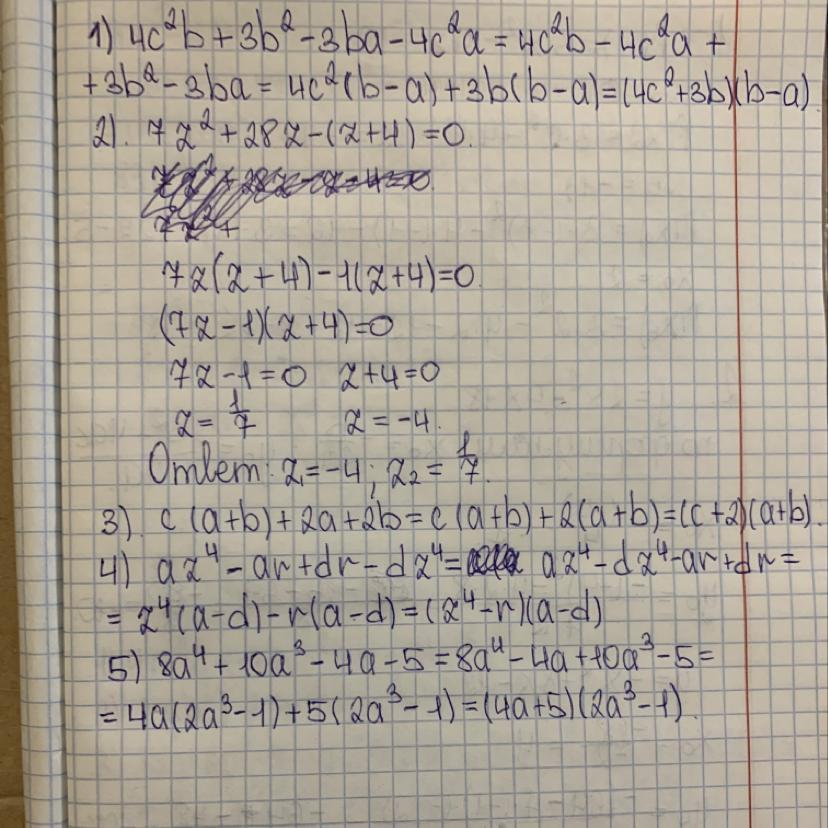 1) 4c²b + 3b² - 3ba - 4c²a = 4c²b - 4c²a +
+ 3b² - 3ba = 4c²(b-a) + 3b(b-a) = (4c²+3b)(b-a)
2). 7z² + 28z - (z+4) = 0.
7z(z+4) - 1(z+4) = 0.
(7z-1)(z+4) = 0
7z-1 = 0 z+4 = 0
z = 1/7 z = -4.
Ответ: z₁ = -4; z₂ = 1/7.
3). c(a+b) + 2a + 2b = c(a+b) + 2(a+b) = (c+2)(a+b).
4) az⁴ - ar + dr - dz⁴ = az⁴ - dz⁴ - ar + dr =
= z⁴(a-d) - r(a-d) = (z⁴-r)(a-d)
5) 8a⁴ + 10a³ - 4a - 5 = 8a⁴ - 4a + 10a³ - 5 =
= 4a(2a³-1) + 5(2a³-1) = (4a+5)(2a³-1).